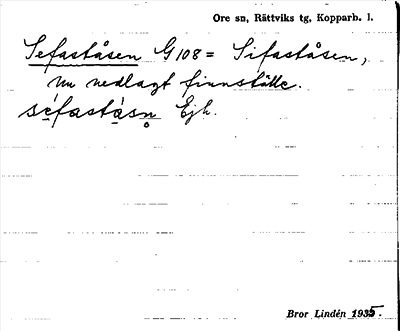 Ore sn, Rättviks tg, Kopparb. l.
Sefaståsen G 108 = Sifaståsen,
nu nedlagt finnställe.
séfastàsn̥ Ejh.
Bror Lindén 1935.